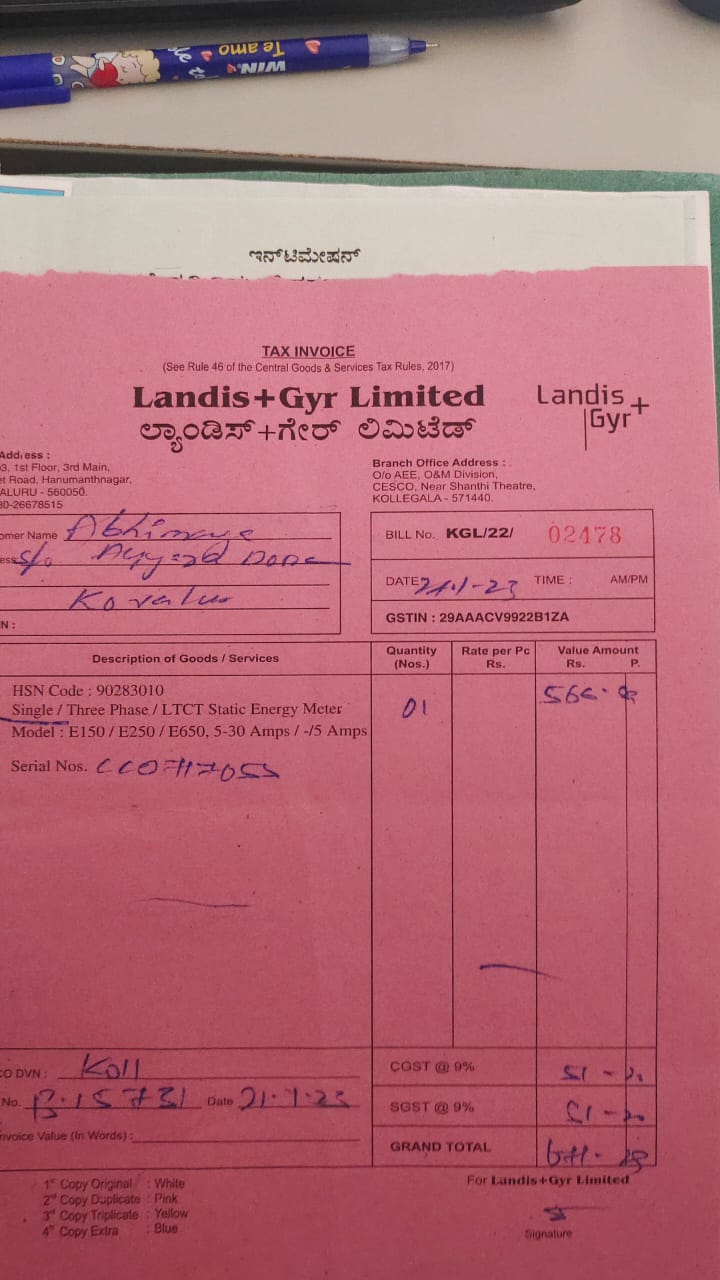 Te amo
WIN
ಇನ್‌ಟಿಮೇಷನ್
TAX INVOICE
(See Rule 46 of the Central Goods & Services Tax Rules, 2017)
Landis+Gyr Limited
ಲ್ಯಾಂಡಿಸ್+ಗೇರ್ ಲಿಮಿಟೆಡ್
Landis
Gyr+
Address :
3, 1st Floor, 3rd Main,
et Road, Hanumanthnagar,
ALURU - 560050.
80-26678515
Branch Office Address :
O/o AEE, O&M Division,
CESCO, Near Shanthi Theatre,
KOLLEGALA - 571440.
omer Name
ess S/o
N :
BILL No. KGL/22/ 02478
DATE 21-1-23 TIME : AM/PM
GSTIN : 29AAACV9922B1ZA
Description of Goods / Services
Quantity (Nos.)
Rate per Pc Rs.
Value Amount Rs. P.
HSN Code : 90283010
Single / Three Phase / LTCT Static Energy Meter
01
Model : E150 / E250 / E650, 5-30 Amps / -/5 Amps
Serial Nos.
O DVN : Koll
CGST @ 9%
No. B.15731 Date 21.1.23
SGST @ 9%
nvoice Value (In Words) :
GRAND TOTAL
For Landis+Gyr Limited
1st Copy Original : White
2nd Copy Duplicate : Pink
3rd Copy Triplicate : Yellow
4th Copy Extra : Blue
Signature